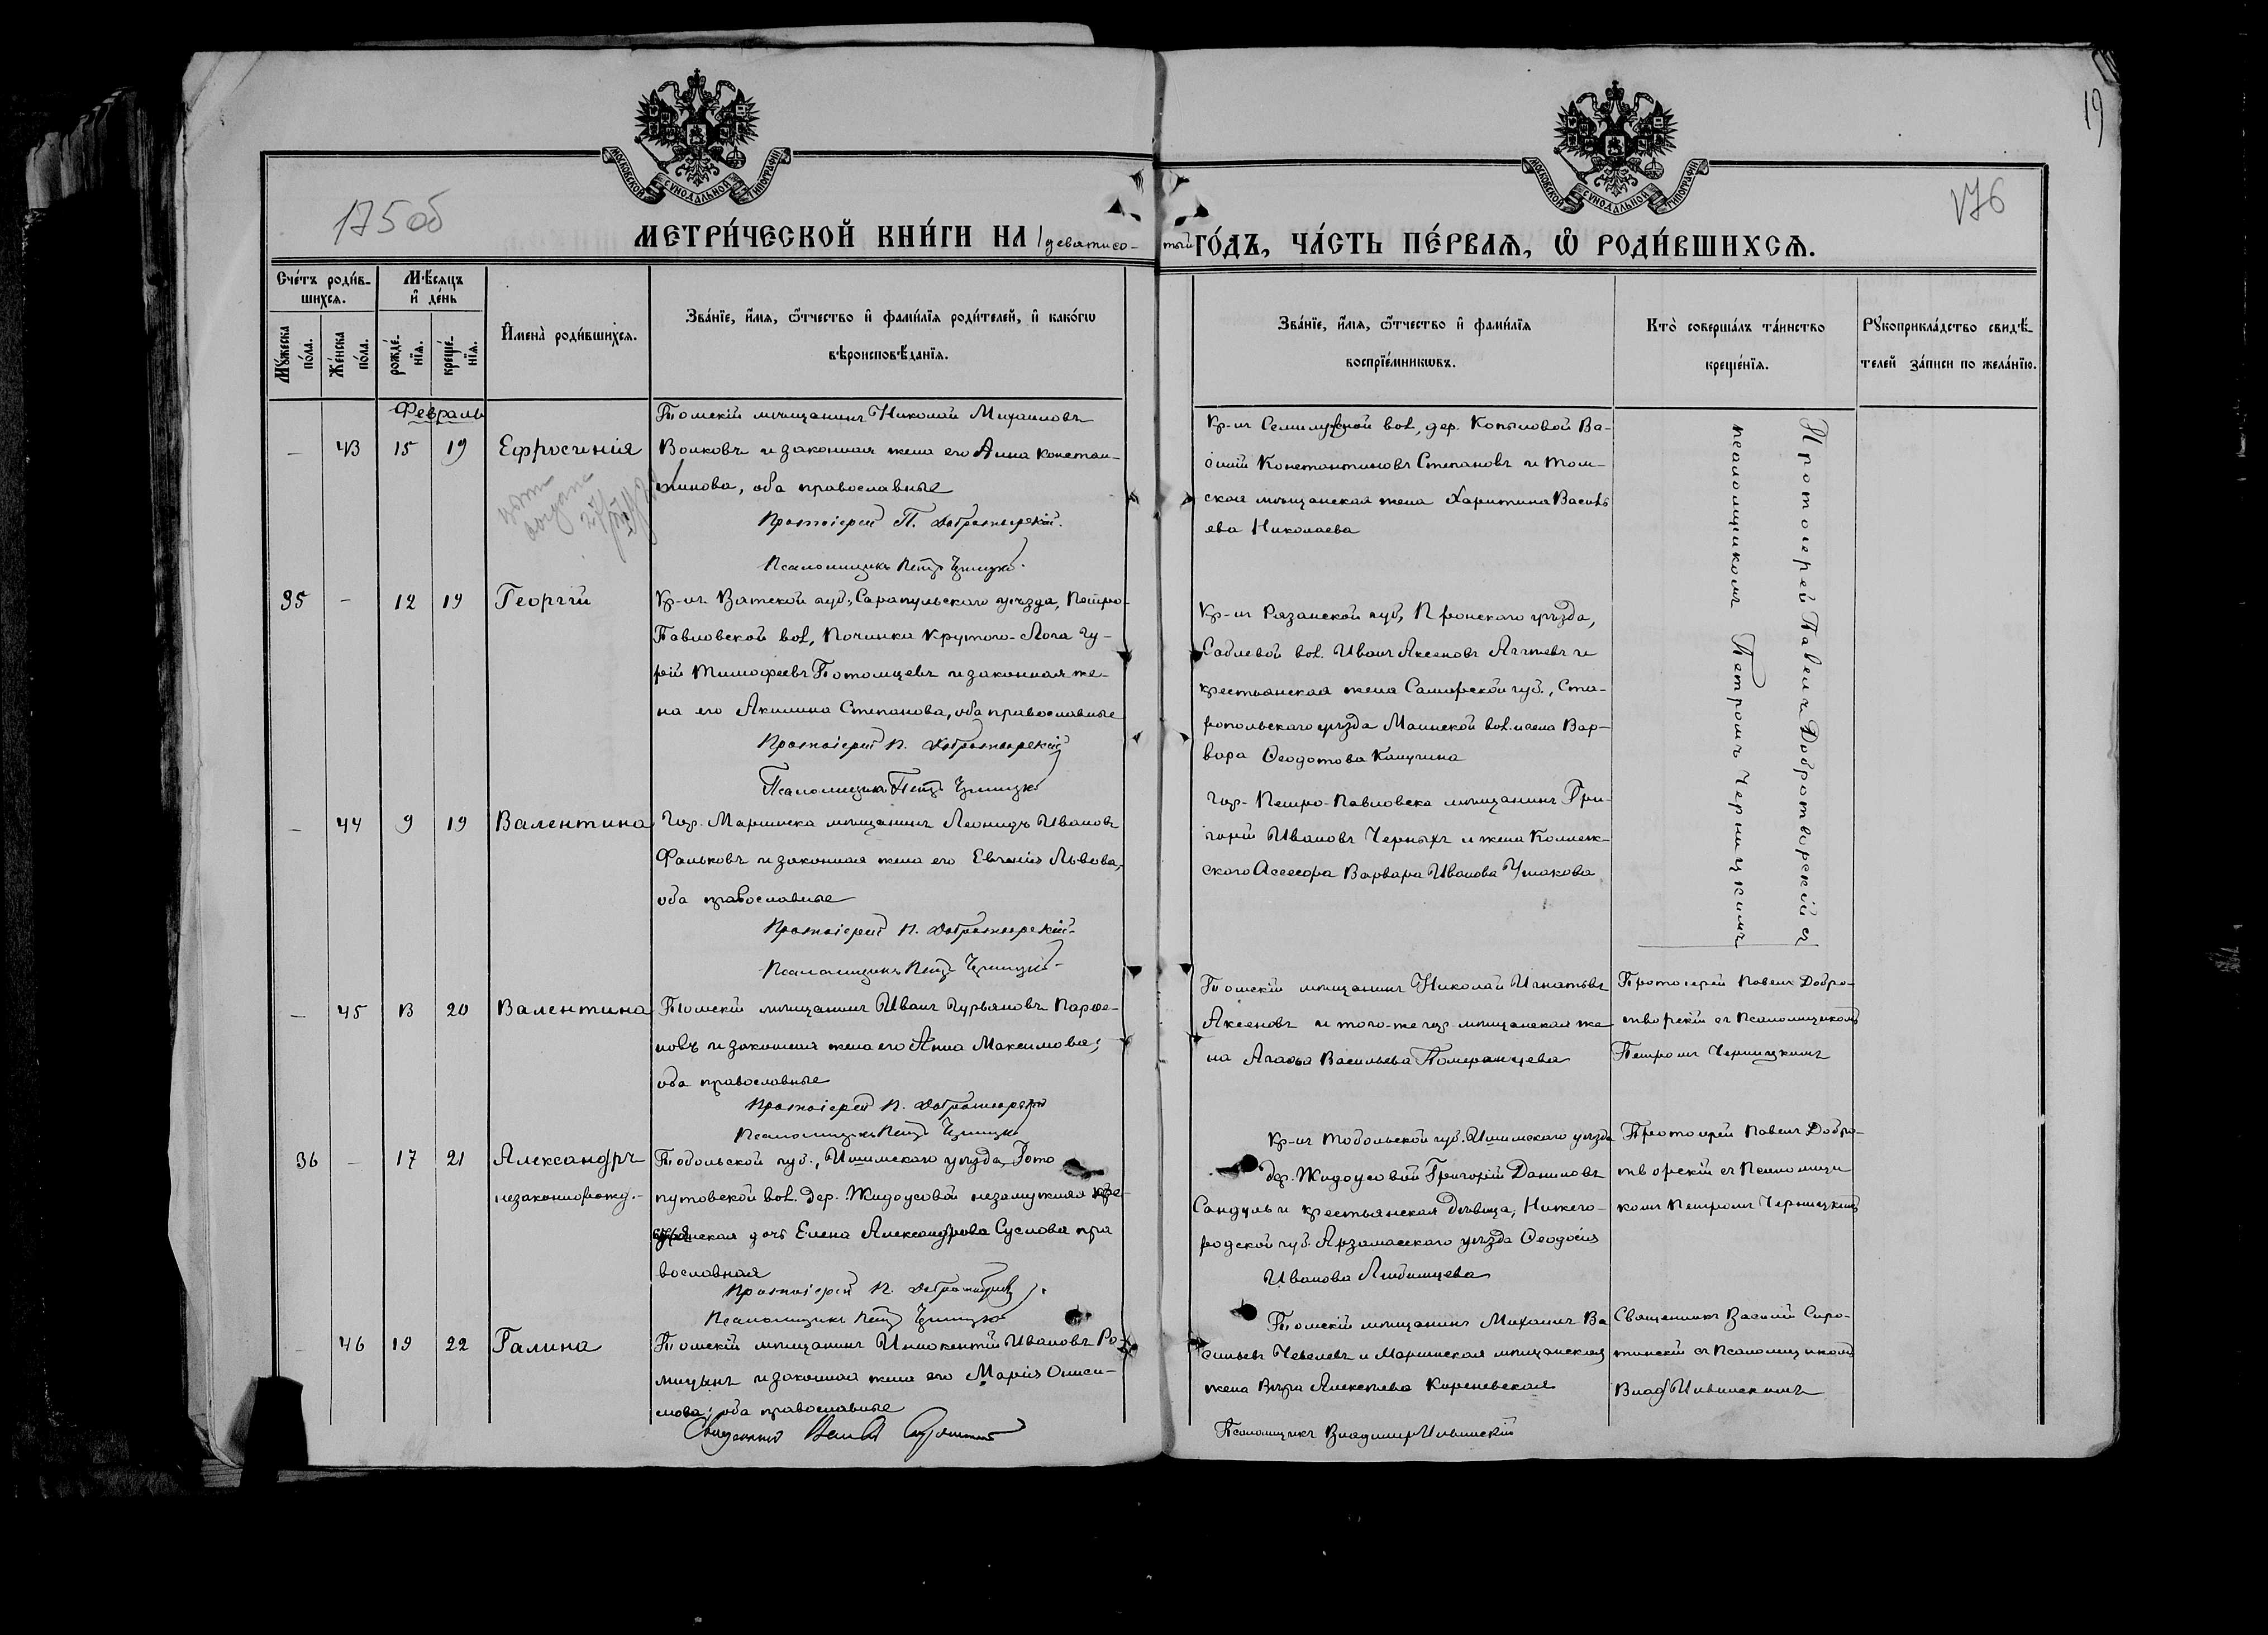 19
175 об
176
МОСКОВСКОЙ СУНОДАЛЬНОЙ ТИПОГРАФІИ
МОСКОВСКОЙ СУНОДАЛЬНОЙ ТИПОГРАФІИ
МЕТРИ́ЧЕСКОЙ КНИ́ГИ НА 1девятисо-тый ГО́ДЪ, ЧА́СТЬ ПЕ́РВАѦ, Ѡ҆ РОДИ́ВШИХСѦ.
Сче́тъ роди́в-
шихсѧ.
Мꙋ́жеска
по́ла.
Же́нска
по́ла.
Мѣ́сѧцъ
и҆ де́нь
рожде́-
нїѧ.
креще́-
нїѧ.
И҆мена̀ роди́вшихсѧ.
Зва́нїе, и҆́мѧ, ѻ҆́тчество и҆ фами́лїѧ роди́телей, и҆ како́гѡ
вѣроисповѣ́данїѧ.
Зва́нїе, и҆́мѧ, ѻ҆́тчество и҆ фами́лїѧ
воспрїе́мникѡвъ.
Кто̀ соверша́лъ та́инство
креще́нїѧ.
Рꙋкоприкла́дство свидѣ́-
телей за́писи по жела́нїю.
Февраль
— 43 15 19 Ефросинія
Томскій мѣщанинъ Николай Михаиловъ
Волковъ и законная жена его Анна Констан-
тинова, оба православные
Протоіерей П. Добротворскій.
Псаломщикъ Петръ Черницкій
Кр-нъ Семилужной вол., дер. Копыловой Ва-
силій Константиновъ Степановъ и том-
ская мѣщанская жена Харитина Василь
ева Николаева
Протоіерей Павелъ Добротворскій съ
псаломщикомъ Петромъ Черницкимъ
35 — 12 19 Георгій
Кр-нъ Вятской губ., Сарапульскаго уѣзда, Петро-
Павловской вол., Починка Крутого-Лога Гу-
рій Тимофеевъ Потомцевъ и законная же-
на его Акилина Степанова, оба православные
Протоіерей П. Добротворскій
Псаломщикъ Петръ Черницкій
Кр-нъ Рязанской губ., Пронскаго уѣзда,
вол. Иванъ Аксеновъ и
крестьянская жена Самарской губ., Ста-
ропольскаго уѣзда Маинской вол. и села Вар-
вара Ѳеодотова
— 44 9 19 Валентина
Гор. Маріинска мѣщанинъ Леонидъ Ивановъ
Фальковъ и законная жена его Евгенія Львова,
оба православные
Протоіерей П. Добротворскій
Псаломщикъ Петръ Черницкій
Гор. Петро-Павловска мѣщанинъ Гри-
горій Ивановъ Черныхъ и жена Коллеж-
скаго Асессора Варвара Иванова Ушакова
— 45 13 20 Валентина
Томскій мѣщанинъ Иванъ Гурьяновъ Парѳе-
новъ и законная жена его Анна Максимова,
оба православные
Протоіерей П. Добротворскій
Псаломщикъ Петръ Черницкій
Томскій мѣщанинъ Николай Игнатьевъ
Аксеновъ и того-же гор. мѣщанская же
на Агаѳья Васильева Померанцева
Протоіерей Павелъ Добро-
творскій съ Псаломщикомъ
Петромъ Черницкимъ
36 — 17 21 Александръ
незаконнорожд.-
Тобольской губ., Ишимскаго уѣзда, Гото
путовской вол. дер. Жидоусовой незамужняя кре-
стьянская дочь Елена Александрова Суслова пра
вославная
Протоіерей П. Добротворскій
Псаломщикъ Петръ Черницкій
Кр-нъ Тобольской губ. Ишимскаго уѣзда
дер. Жидоусовой Григорій Даниловъ
и крестьянская дѣвица, Нижего-
родской губ. Арзамасскаго уѣзда Ѳеодосія
Иванова Любимцева
Протоіерей Павелъ Добро-
творскій съ Псаломщи
комъ Петромъ Черницкимъ
— 46 19 22 Галина
Томскій мѣщанинъ Иннокентій Ивановъ Ро-
мицынъ и законная жена его Марія Ониси-
мова; оба православные
Священникъ Василій Сиротинскій
Томскій мѣщанинъ Михаилъ Ва
сильевъ Чевелевъ и Маріинская мѣщанская
жена Вѣра Алексѣева Кореневская
Псаломщикъ Владимиръ Ильинскій
Священникъ Василій Сиро-
тинскій съ Псаломщикомъ
Влад Ильинскимъ